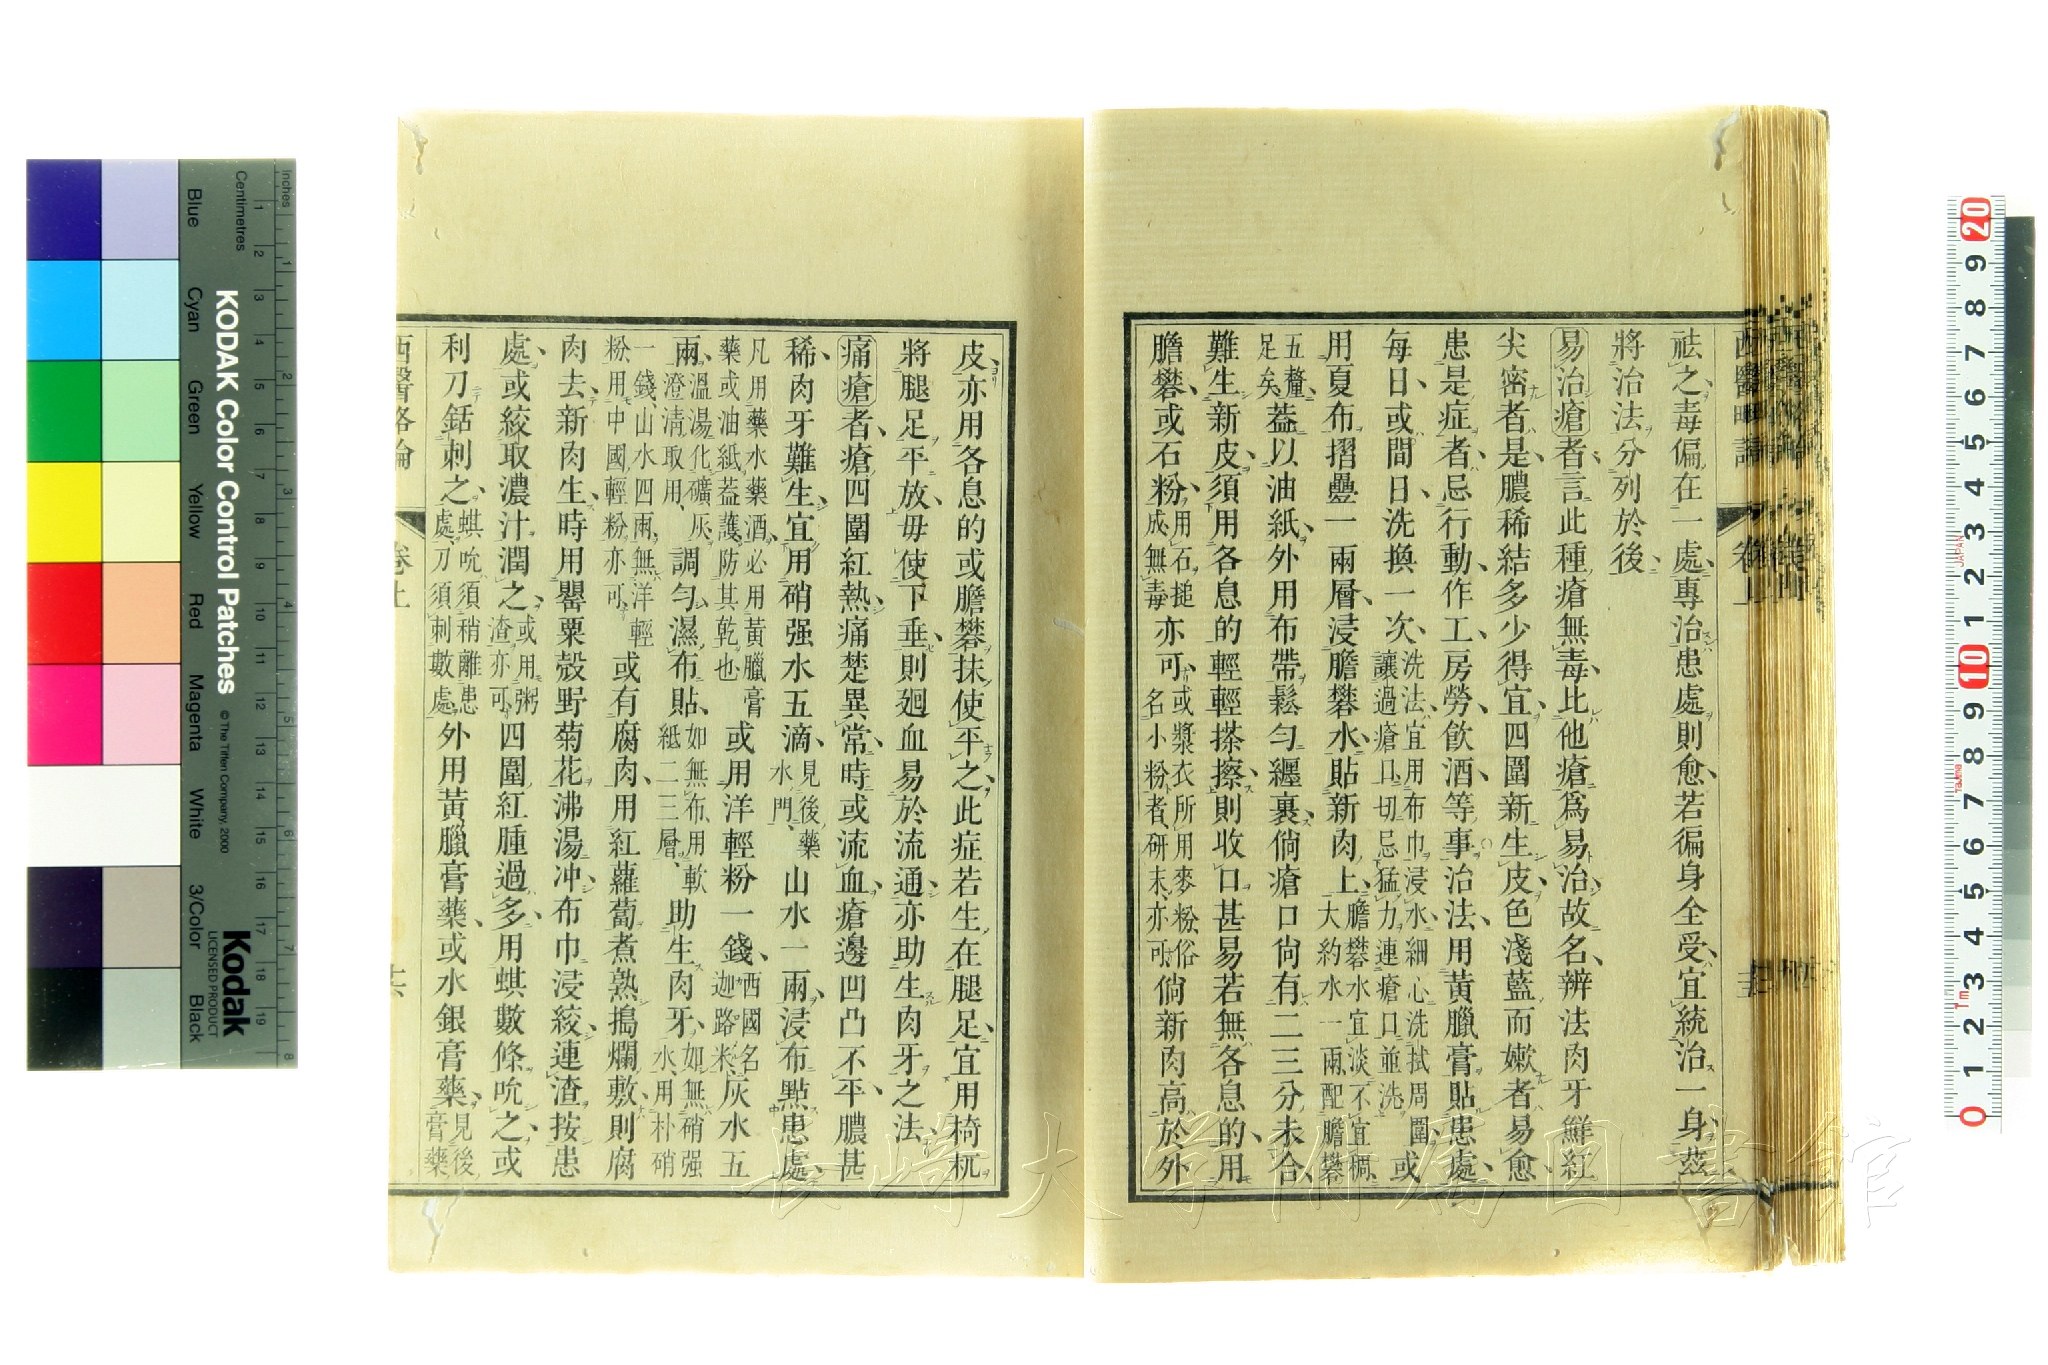 祛之毒偏在一處專治患處則愈若徧身全受宜統治一身茲
將治法分列於後
易治瘡者言此種瘡無毒比他瘡爲易治故名辨法肉牙鮮紅
尖密者是膿稀結多少得宜四圍新生皮色淺藍而嫩者易愈
患是症者忌行動作工房勞飲酒等事治法用黃臘膏貼患處
每日或間日洗換一次洗法宜用布巾浸水細心洗拭周圍讓過瘡口切忌猛力連瘡口並洗或
用夏布摺疊一兩層浸膽礬水貼新肉上膽礬水宜淡不宜稠大約水一兩配膽礬
五釐足矣葢以油紙外用布帶鬆勻纏裏倘瘡口尙有二三分未合
難生新皮須用各息的輕輕搽擦則收口甚易若無各息的用
膽礬或石粉用石搥成無毒亦可或漿衣所用麥粉俗名小粉者研末亦可倘新肉高於外
西醫略論
卷上
皮亦用各息的或膽礬抹使平之此症若生在腿足宜用椅杬
將腿足平放毋使下垂則廻血易於流通亦助生肉牙之法
痛瘡者瘡四圍紅熱痛楚異常時或流血瘡邊凹凸不平膿甚
稀肉牙難生宜用硝强水五滴見後藥水門山水一兩浸布點患處
凡用藥水藥酒必用黃臘膏藥或油紙葢護防其乾也或用洋輕粉一錢西國名迦路米灰水五
兩溫湯化礦灰澄清取用調勻濕布貼如無布用軟紙二三層助生肉牙如無硝强水用朴硝
一錢山水四兩無洋輕粉用中國輕粉亦可或有腐肉用紅蘿蔔煮熟搗爛敷則腐
肉去新肉生時用罌粟殼野菊花沸湯冲布巾浸絞連渣按患
處或絞取濃汁潤之或用粥渣亦可四圍紅腫過多用蜞數條吮之或
利刀銛刺之蜞吮須稍離患處刀須刺數處外用黃臘膏藥或水銀膏藥見後膏藥
西醫略論
卷上
十六
KODAK Color Control Patches
© The Tiffen Company, 2000
Kodak
LICENSED PRODUCT
Inches
Centimetres
Blue
Cyan
Green
Yellow
Red
Magenta
White
3/Color
Black
長崎大学附属図書館